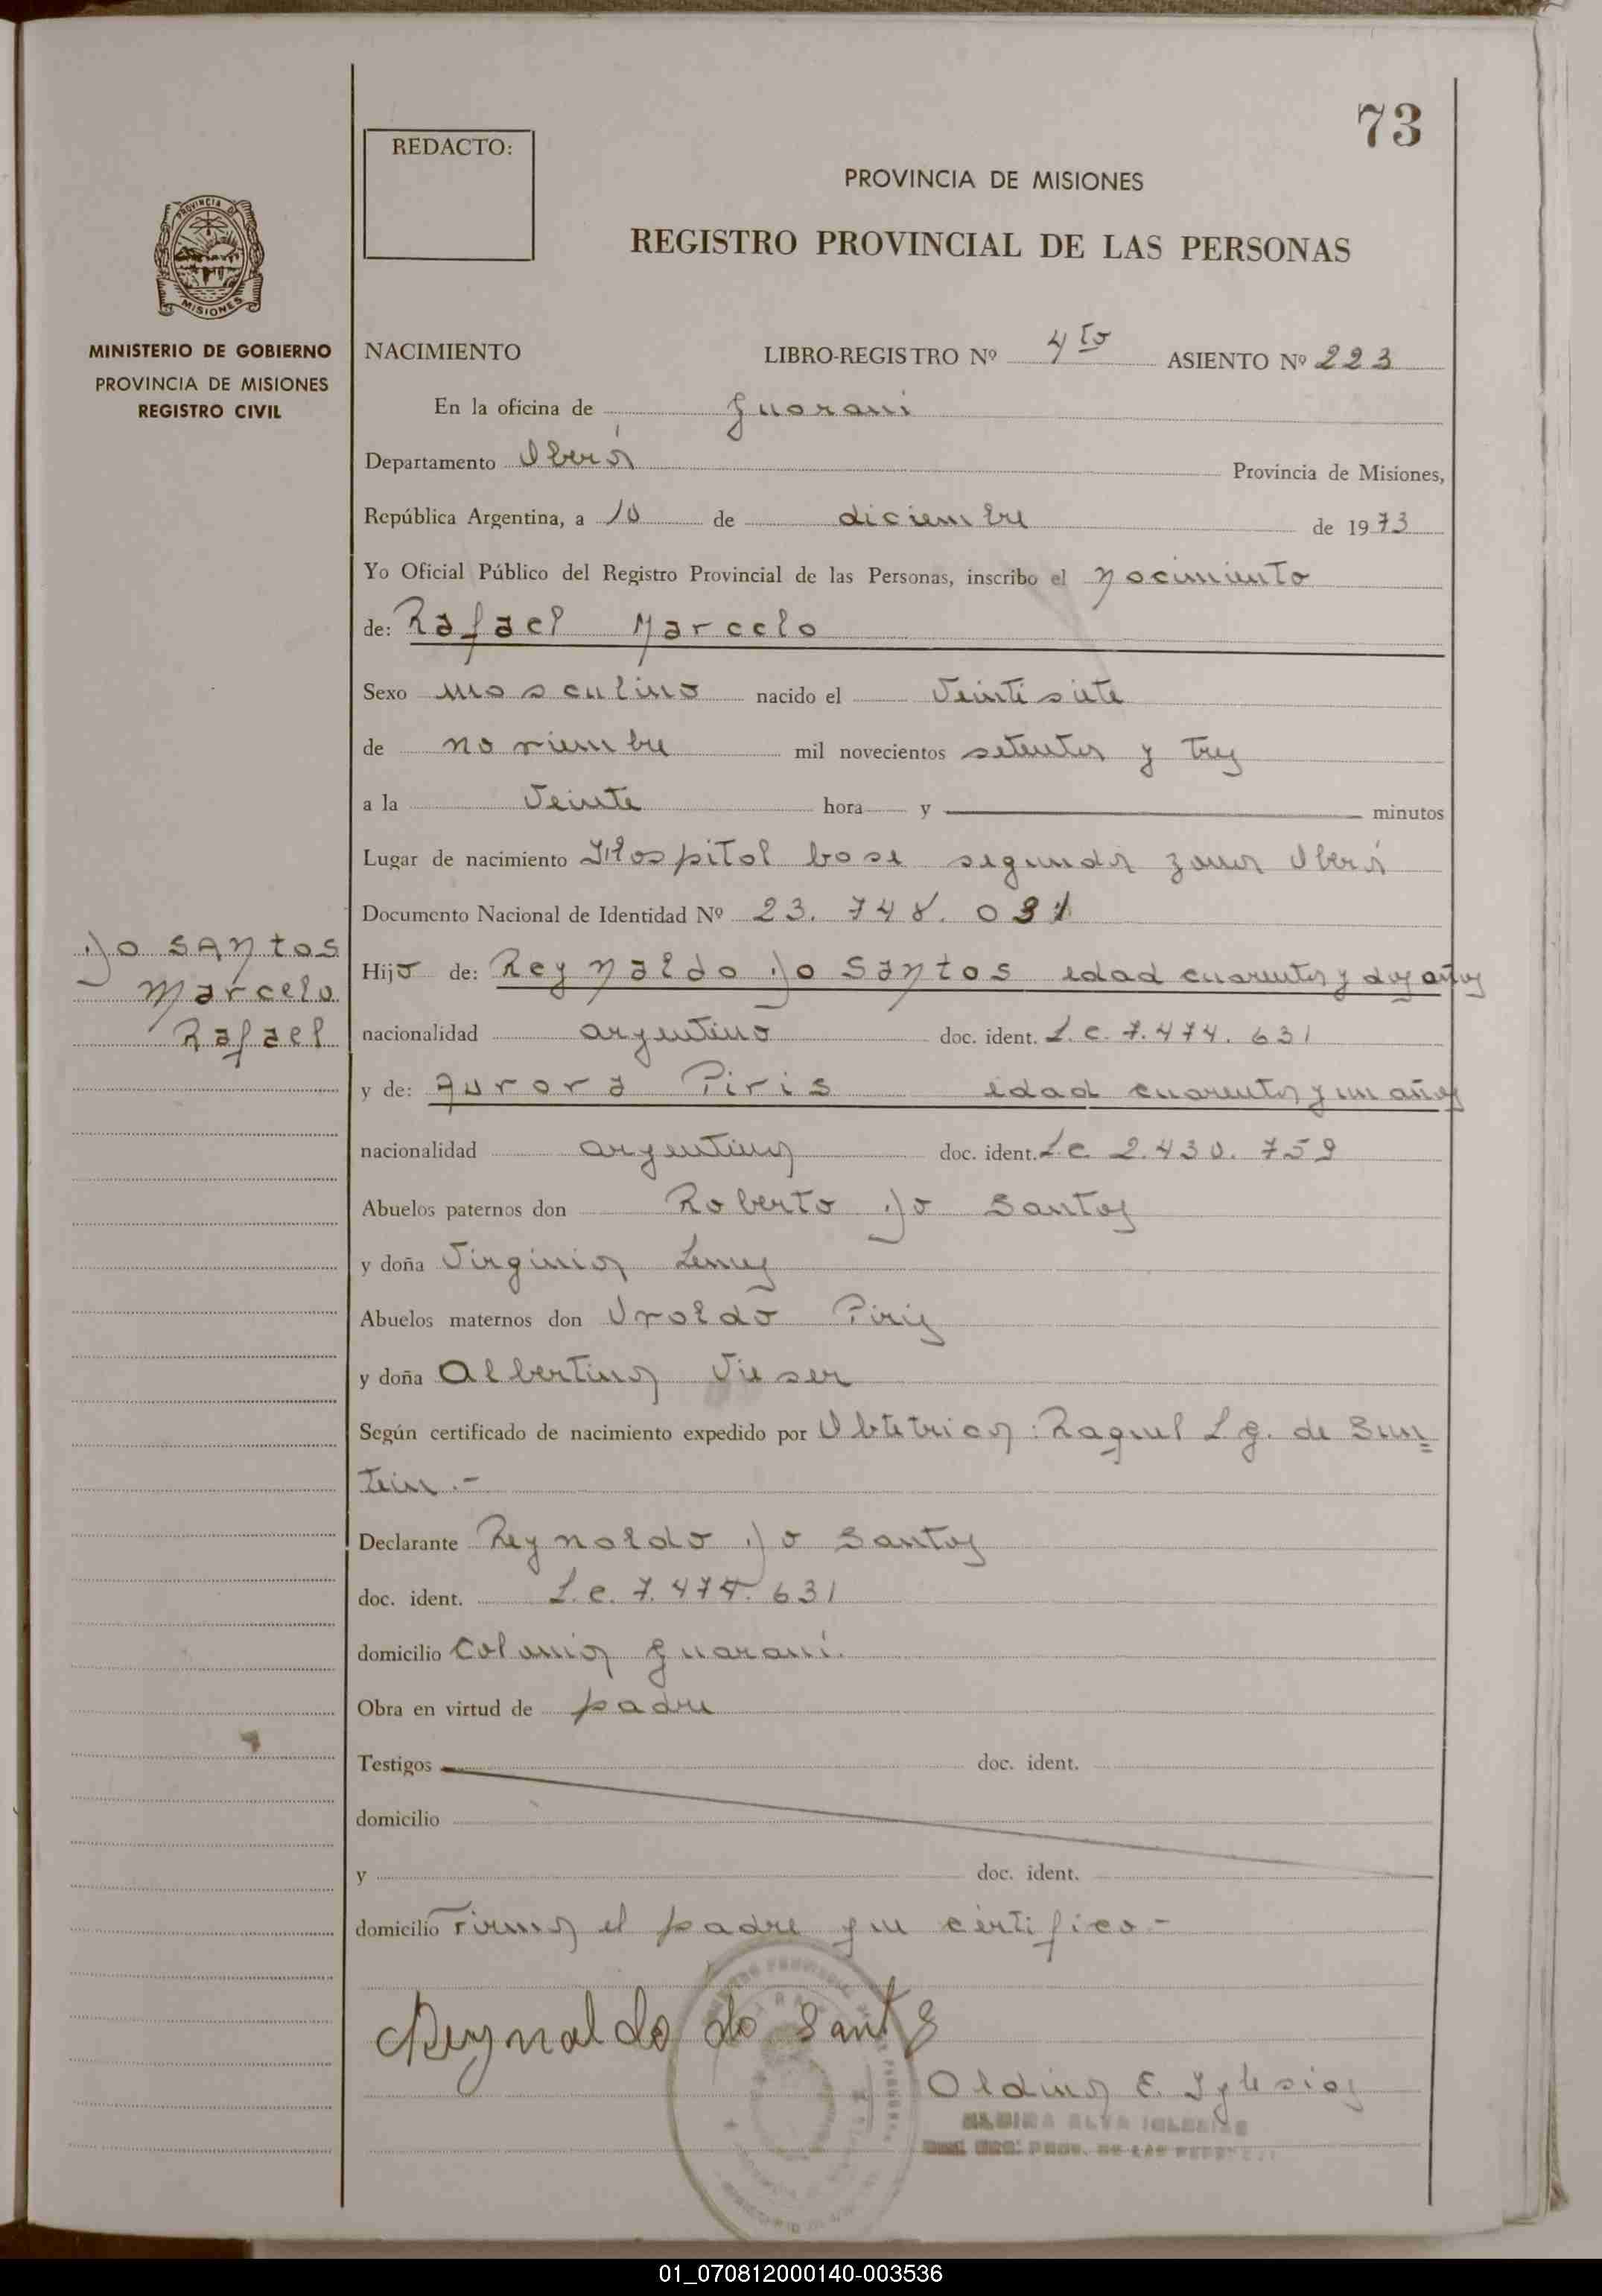 73
REDACTO:
PROVINCIA DE MISIONES
REGISTRO PROVINCIAL DE LAS PERSONAS
PROVINCIA DE
MISIONES
MINISTERIO DE GOBIERNO
PROVINCIA DE MISIONES
REGISTRO CIVIL
NACIMIENTO LIBRO-REGISTRO Nº 4to ASIENTO Nº 223
En la oficina de Guarani
Departamento Oberá Provincia de Misiones,
República Argentina, a 10 de diciembre de 1973
Yo Oficial Público del Registro Provincial de las Personas, inscribo el nacimiento
de: Rafael Marcelo
Sexo masculino nacido el Veintisiete
de noviembre mil novecientos setenta y tres
a la Veinte hora y minutos
Lugar de nacimiento Hospital base segunda zona Oberá
Documento Nacional de Identidad Nº 23.748.031
Do SANtos
Marcelo
Rafael
Hijo de: Reynaldo Do Santos edad cuarenta y dos años
nacionalidad argentino doc. ident. L.E. 7.474.631
y de: Aurora Piris edad cuarenta y un años
nacionalidad argentina doc. ident. L.C. 2.430.759
Abuelos paternos don Roberto Do Santos
y doña Virginia Lemes
Abuelos maternos don Uroldo Piris
y doña Albertina Vieser
Según certificado de nacimiento expedido por Obtetrica: Raquel L g. de Sun=
tein.-
Declarante Reynaldo Do Santos
doc. ident. L.E. 7.474.631
domicilio Colonia Guaraní.
Obra en virtud de padre
Testigos doc. ident.
domicilio
y doc. ident.
domicilio Firma el padre que certifico.-
Reynaldo do Santos
Aldina E. Iglesias
ALDINA ELVA IGLESIAS
REG. PROV. DE LAS PERSONAS
01_070812000140-003536